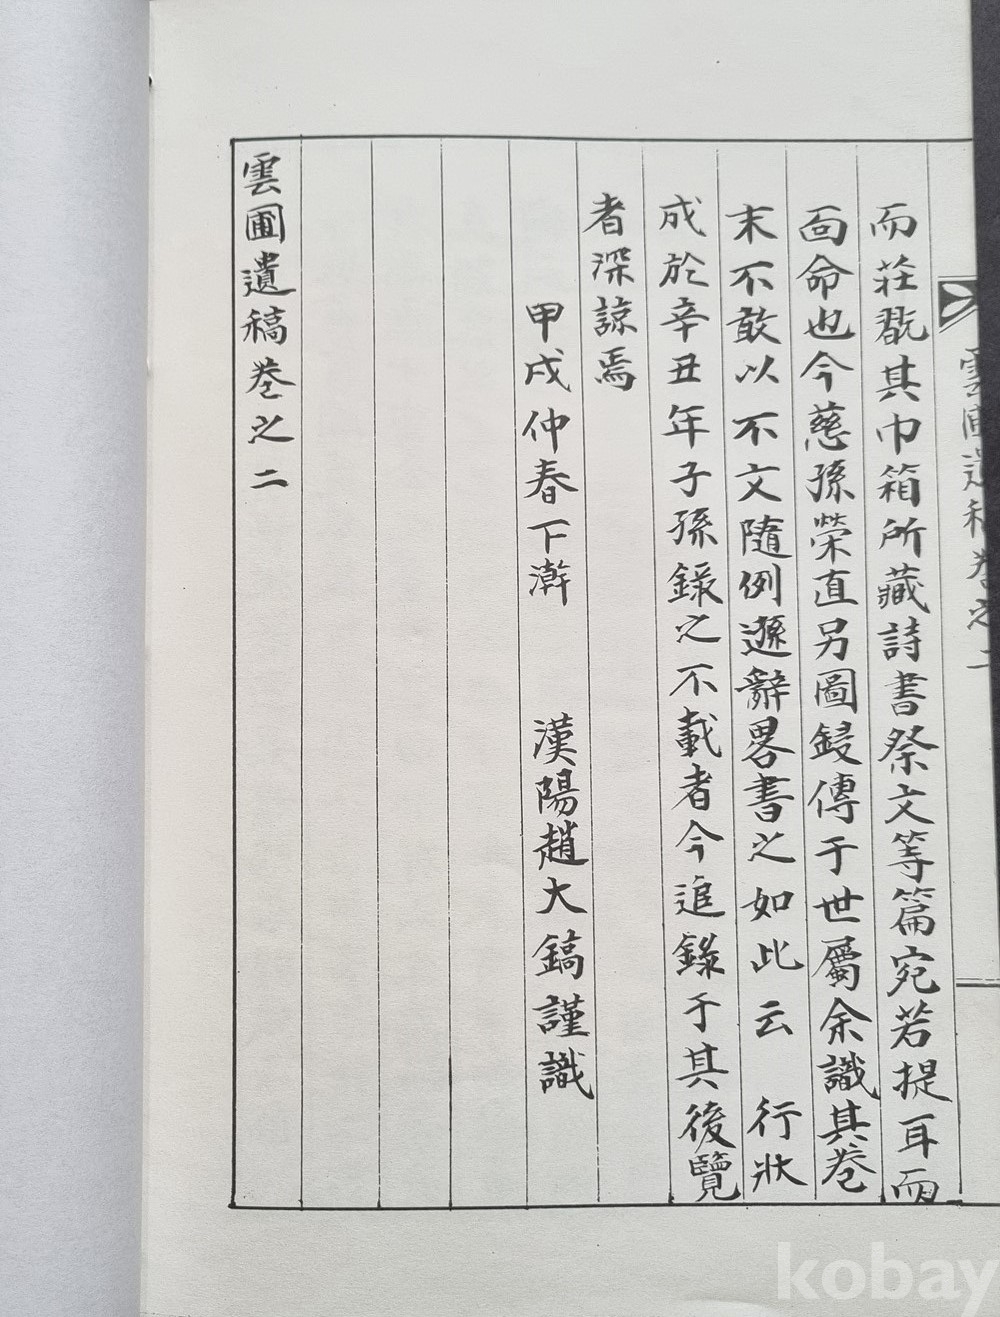 雲圃遺稿卷之二
而莊翫其巾箱所藏詩書祭文等篇宛若提耳而
面命也今慈孫榮直另圖鋟傳于世屬余識其卷
末不敢以不文隨例遜辭畧書之如此云 行狀
成於辛丑年子孫錄之不載者今追錄于其後覽
者深諒焉
甲戌仲春下澣 漢陽趙大鎬謹識
雲圃遺稿卷之二
kobay